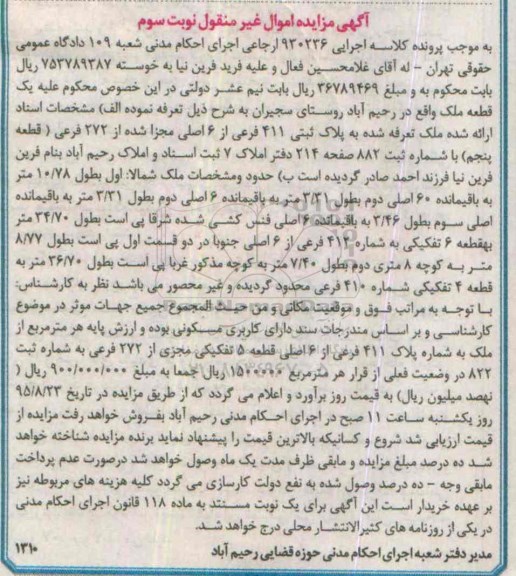 آگهی مزایده اموال غیر منقول نوبت سوم
به موجب پرونده کلاسه اجرایی ۹۳۰۲۳۶ ارجاعی اجرای احکام مدنی شعبه ۱۰۹ دادگاه عمومی
حقوقی تهران - له آقای غلامحسین فعال و علیه فرید فرین نیا به خوسته ۷۵۳۷۸۹۳۸۷ ریال
بابت محکوم به و مبلغ ۳۶۷۸۹۴۶۹ ریال بابت نیم عشر دولتی در این خصوص محکوم علیه یک
قطعه ملک واقع در رحیم آباد روستای سجیران به شرح ذیل تعرفه نموده الف) مشخصات اسناد
ارائه شده ملک تعرفه شده به پلاک ثبتی ۴۱۱ فرعی از ۶ اصلی مجزا شده از ۲۷۲ فرعی ( قطعه
پنجم) با شماره ثبت ۸۸۲ صفحه ۲۱۴ دفتر املاک ۷ ثبت اسناد و املاک رحیم آباد بنام فرین
فرین نیا فرزند احمد صادر گردیده است ب) حدود ومشخصات ملک شمالا: اول بطول ۱۰/۷۸ متر
به باقیمانده ۶۰ اصلی دوم بطول ۳/۳۱ متر به باقیمانده ۶ اصلی دوم بطول ۳/۳۱ متر به باقیمانده
اصلی سوم بطول ۲/۴۶ به باقیمانده ۶ اصلی فنس کشی شده شرقا پی است بطول ۳۴/۷۰ متر
بهقطعه ۶ تفکیکی به شماره ۴۱۲ فرعی از ۶ اصلی جنوبا در دو قسمت اول پی است بطول ۸/۷۷
متر به کوچه ۸ متری دوم بطول ۷/۴۰ متر به کوچه مذکور غربا پی است بطول ۳۶/۷۰ متر به
قطعه ۴ تفکیکی شماره ۴۱۰ فرعی محدود گردیده و غیر محصور می باشد نظر به کارشناس:
با توجه به مراتب فوق و موقعیت مکانی و من حیث المجموع جمیع جهات موثر در موضوع
کارشناسی و بر اساس مندرجات سند دارای کاربری مسکونی بوده و ارزش پایه هر مترمربع از
ملک به شماره پلاک ۴۱۱ فرعی از ۶ اصلی قطعه ۵ تفکیکی مجزی از ۲۷۲ فرعی به شماره ثبت
۸۲۲ در وضعیت فعلی از قرار هر مترمربع ریال جمعا به مبلغ ۹۰۰/۰۰۰/۰۰۰ ریال (
نهصد میلیون ریال) به قیمت روز برآورد و اعلام می گردد که از طریق مزایده در تاریخ ۹۵/۸/۲۳
روز یکشنبه ساعت ۱۱ صبح در اجرای احکام مدنی رحیم آباد بفروش خواهد رفت مزایده از
قیمت ارزیابی شد شروع و کسانیکه بالاترین قیمت را پیشنهاد نماید برنده مزایده شناخته خواهد
شد ده درصد مبلغ مزایده و مابقی ظرف مدت یک ماه وصول خواهد شد درصورت عدم پرداخت
مابقی وجه - ده درصد وصول شده به نفع دولت کارسازی می گردد کلیه هزینه های مربوطه نیز
بر عهده خریدار است این آگهی برای یک نوبت مستند به ماده ۱۱۸ قانون اجرای احکام مدنی
در یکی از روزنامه های کثیرالانتشار محلی درج خواهد شد.
مدیر دفتر شعبه اجرای احکام مدنی حوزه قضایی رحیم آباد ۱۳۱۰